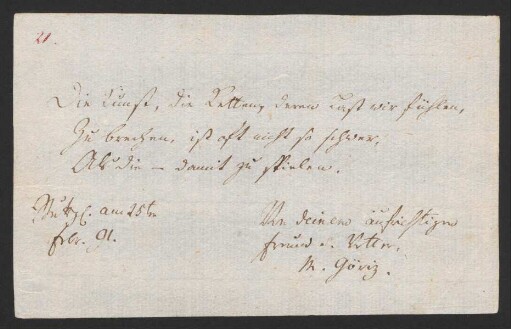 21.
Die Kunst, die Ketten, deren Last wir fühlen,
Zu brechen, ist oft nicht so schwer,
Als die – damit zu spielen.
Stuttg. am 25ten
Febr. 91.
Von deinem aufrichtigen
Freund u. Vetter,
M. Göriz.